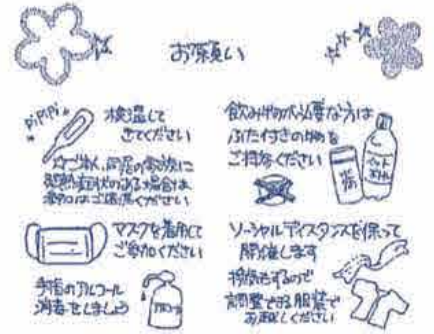 お願い
PiPiPi
検温して
きてください
同居の家族に
発熱症状のある場合は
参加はご遠慮ください
マスクを着用して
ご参加ください
手指のアルコール
消毒をしましょう
飲み物の必要な方は
ふた付きの物を
ご持参ください
ソーシャルディスタンスを保って
開催します
換気をするので
調整できる服装で
お越しください